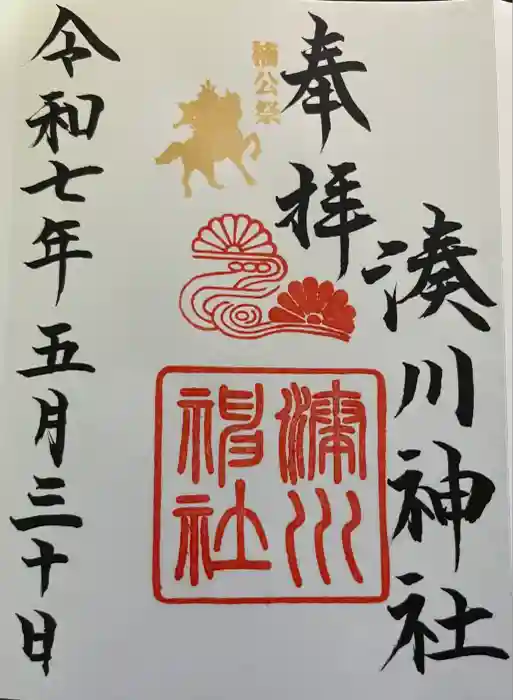 奉拝
湊川神社
楠公祭
湊川
神社
令和七年五月三十日